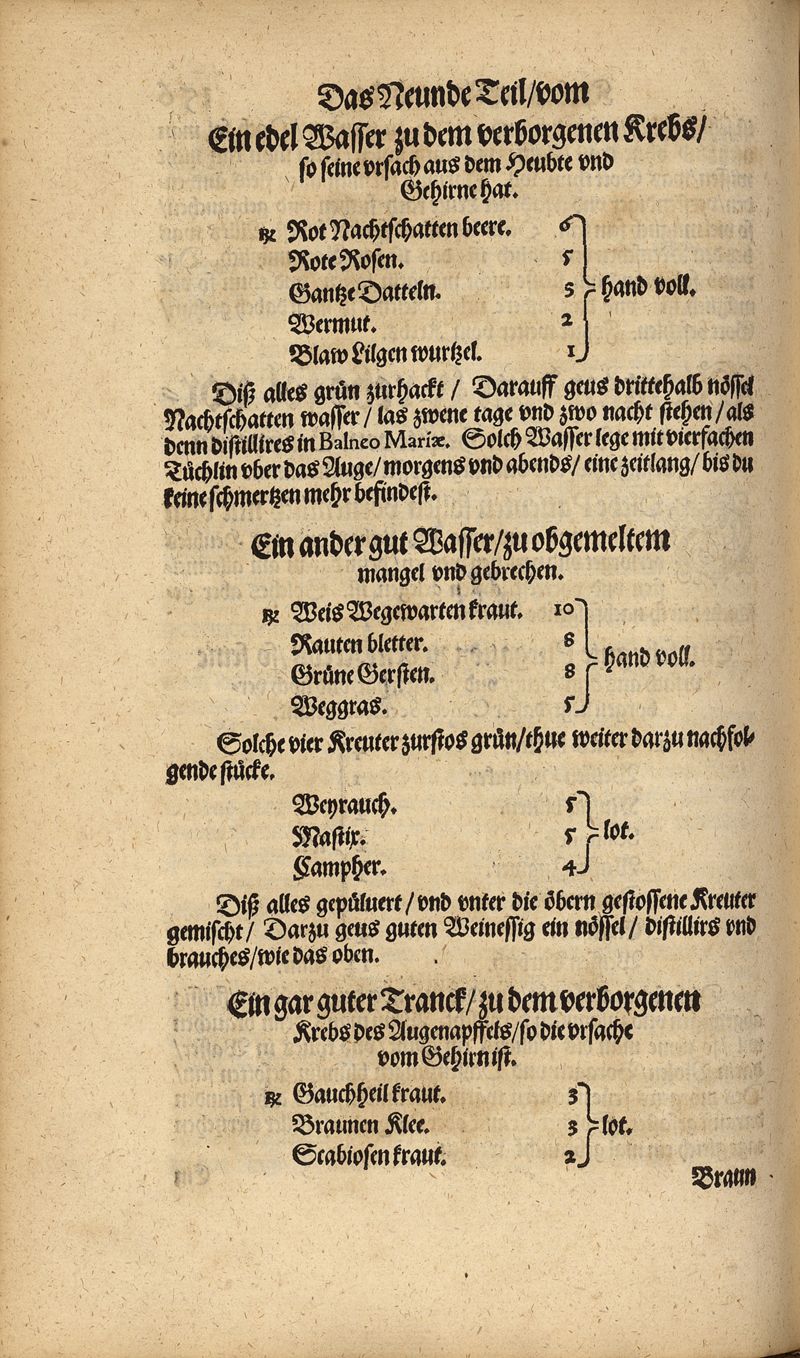 Das Neunde Teil/vom
Ein edel Wasser zu dem verborgenen Krebs/
so seine vrsach aus dem Heubte vnd
Gehirne hat.
℞ Rot Nachtschatten beere. 6
Rote Rosen. 5
Gantze Datteln. 3 hand voll.
Wermut. 2
Blaw Lilgen wurtzel. 1
Diß alles grün zurhackt / Darauff geus drittehalb nössel
Nachtschatten wasser / las zwene tage vnd zwo nacht stehen / als
denn distillires in Balneo Mariæ. Solch Wasser lege mit vierfachen
Tüchlin vber das Auge / morgens vnd abends / eine zeitlang / bis du
keine schmertzen mehr befindest.
Ein ander gut Wasser/zu obgemeltem
mangel vnd gebrechen.
℞ Weis Wegewarten kraut. 10
Rauten bletter. 8
Grüne Gersten. 8 hand voll.
Weggras. 5
Solche vier Kreuter zurstos grün/thue weiter darzu nachfol-
gende stücke.
Weyrauch. 5
Mastix. 5 lot.
Campher. 4
Diß alles gepüluert / vnd vnter die öbern gestossene Kreuter
gemischt / Darzu geus guten Weinessig ein nössel / distillirs vnd
brauches/wie das oben.
Ein gar guter Tranck/zu dem verborgenen
Krebs des Augenapffels/so die vrsache
vom Gehirn ist.
℞ Gauchheil kraut. 3
Braunen Klee. 3 lot.
Scabiosen kraut. 2
Braun